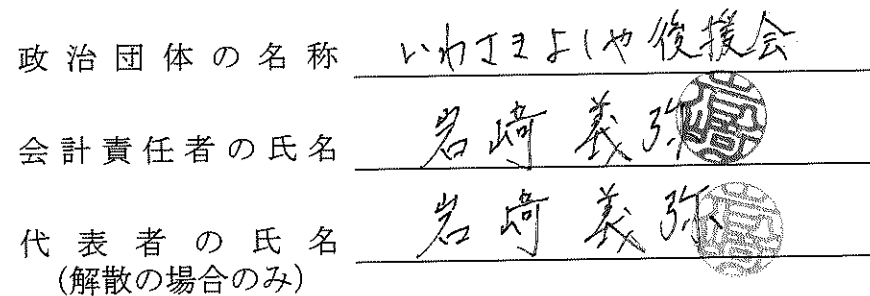 政治団体の名称 いわさきよしや後援会
会計責任者の氏名 岩崎義弥
代表者の氏名 岩崎義弥
(解散の場合のみ)